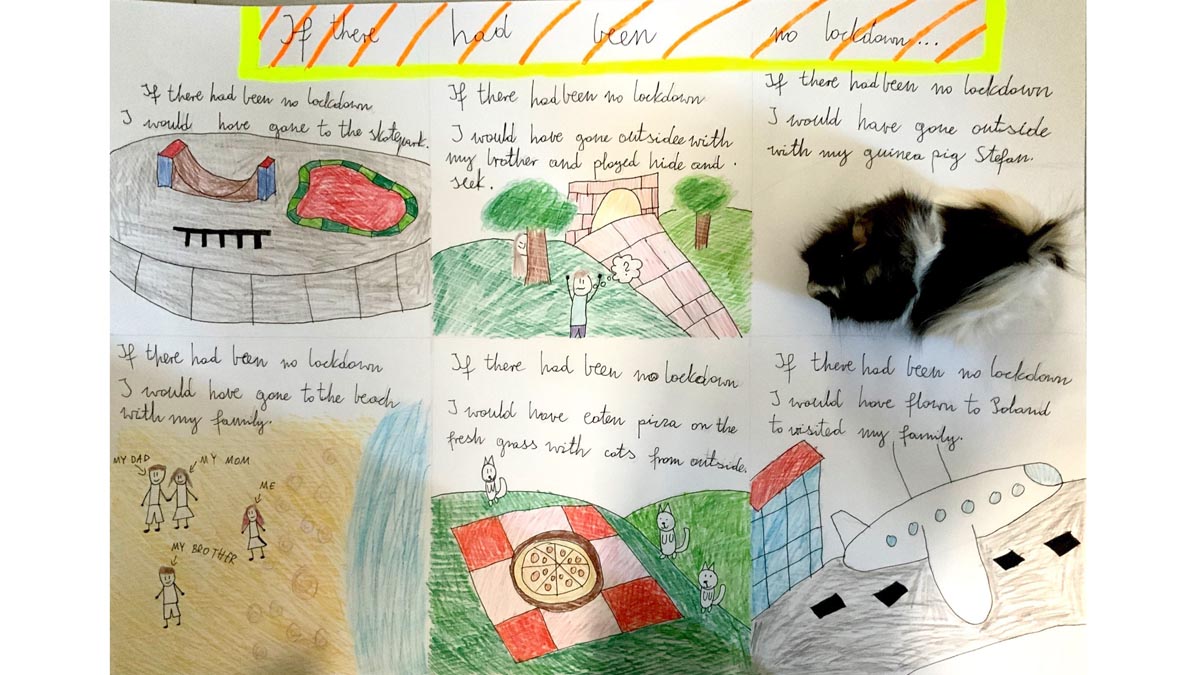 If there had been no lockdown...
If there had been no lockdown
I would have gone to the skatepark.
If there had been no lockdown
I would have gone outsidee with
my brother and played hide and
seek.
?
If there had been no lockdown
I would have gone outside
with my guinea pig Stefan.
If there had been no lockdown
I would have gone to the beach
with my family.
MY DAD
MY MOM
ME
MY BROTHER
If there had been no lockdown
I would have eaten pizza on the
fresh grass with cats from outside.
If there had been no lockdown
I would have flown to Poland
to visited my family.